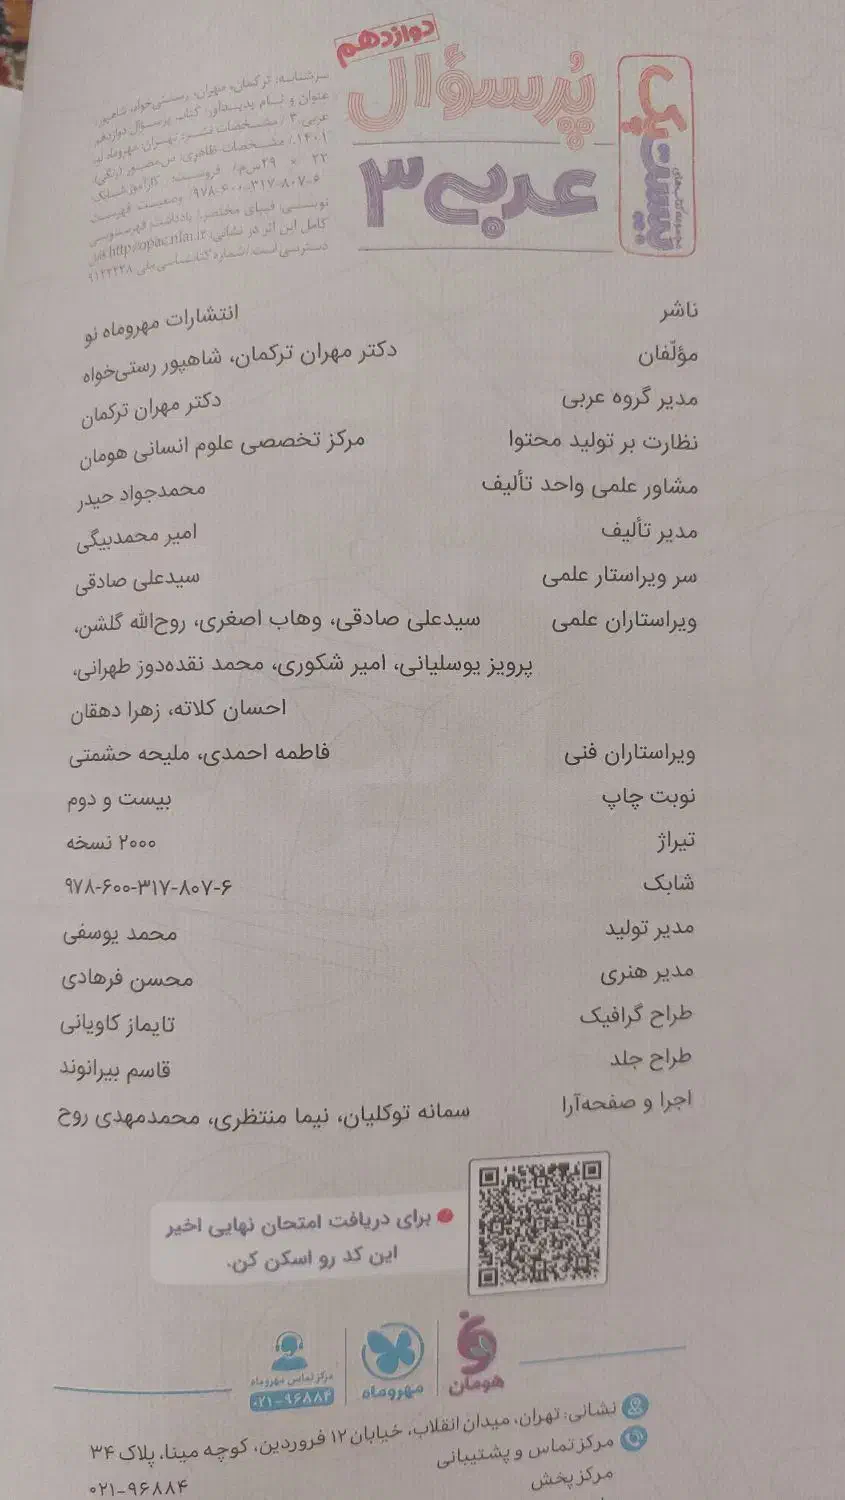 دوازدهم
پُرسؤال
عربی ۳
بیست پک
مجموعه کتاب‌های
سرشناسه: ترکمان، مهران، رستی‌خواه، شاهپور،
عنوان و نام پدیدآور: کتاب پرسؤال دوازدهم
عربی ۳ / مشخصات نشر: تهران: مهروماه نو،
۱۴۰۱. / مشخصات ظاهری: ص.مصور (رنگی)،
۲۲ × ۲۹س‌م./ فروست:
۹۷۸-۶۰۰-۳۱۷-۸۰۷-۶ وضعیت فهرست
نویسی: فیپای مختصر/ یادداشت: فهرستنویسی
کامل این اثر در نشانی: http://opac.nlai.ir قابل
دسترسی است / شماره کتابشناسی ملی
ناشر انتشارات مهروماه نو
مؤلّفان دکتر مهران ترکمان، شاهپور رستی‌خواه
مدیر گروه عربی دکتر مهران ترکمان
نظارت بر تولید محتوا مرکز تخصصی علوم انسانی هومان
مشاور علمی واحد تألیف محمدجواد حیدر
مدیر تألیف امیر محمدبیگی
سر ویراستار علمی سیدعلی صادقی
ویراستاران علمی سیدعلی صادقی، وهاب اصغری، روح‌الله گلشن،
پرویز یوسلیانی، امیر شکوری، محمد نقده‌دوز طهرانی،
احسان کلاته، زهرا دهقان
ویراستاران فنی فاطمه احمدی، ملیحه حشمتی
نوبت چاپ بیست و دوم
تیراژ ۲۰۰۰ نسخه
شابک ۹۷۸-۶۰۰-۳۱۷-۸۰۷-۶
مدیر تولید محمد یوسفی
مدیر هنری محسن فرهادی
طراح گرافیک تایماز کاویانی
طراح جلد قاسم بیرانوند
اجرا و صفحه‌آرا سمانه توکلیان، نیما منتظری، محمدمهدی روح
برای دریافت امتحان نهایی اخیر
این کد رو اسکن کن.
هومان
مهروماه
مرکز تماس مهروماه
۰۲۱-۹۶۸۸۴
نشانی: تهران، میدان انقلاب، خیابان ۱۲ فروردین، کوچه مینا، پلاک ۳۴
مرکز تماس و پشتیبانی ۰۲۱-۹۶۸۸۴
مرکز پخش